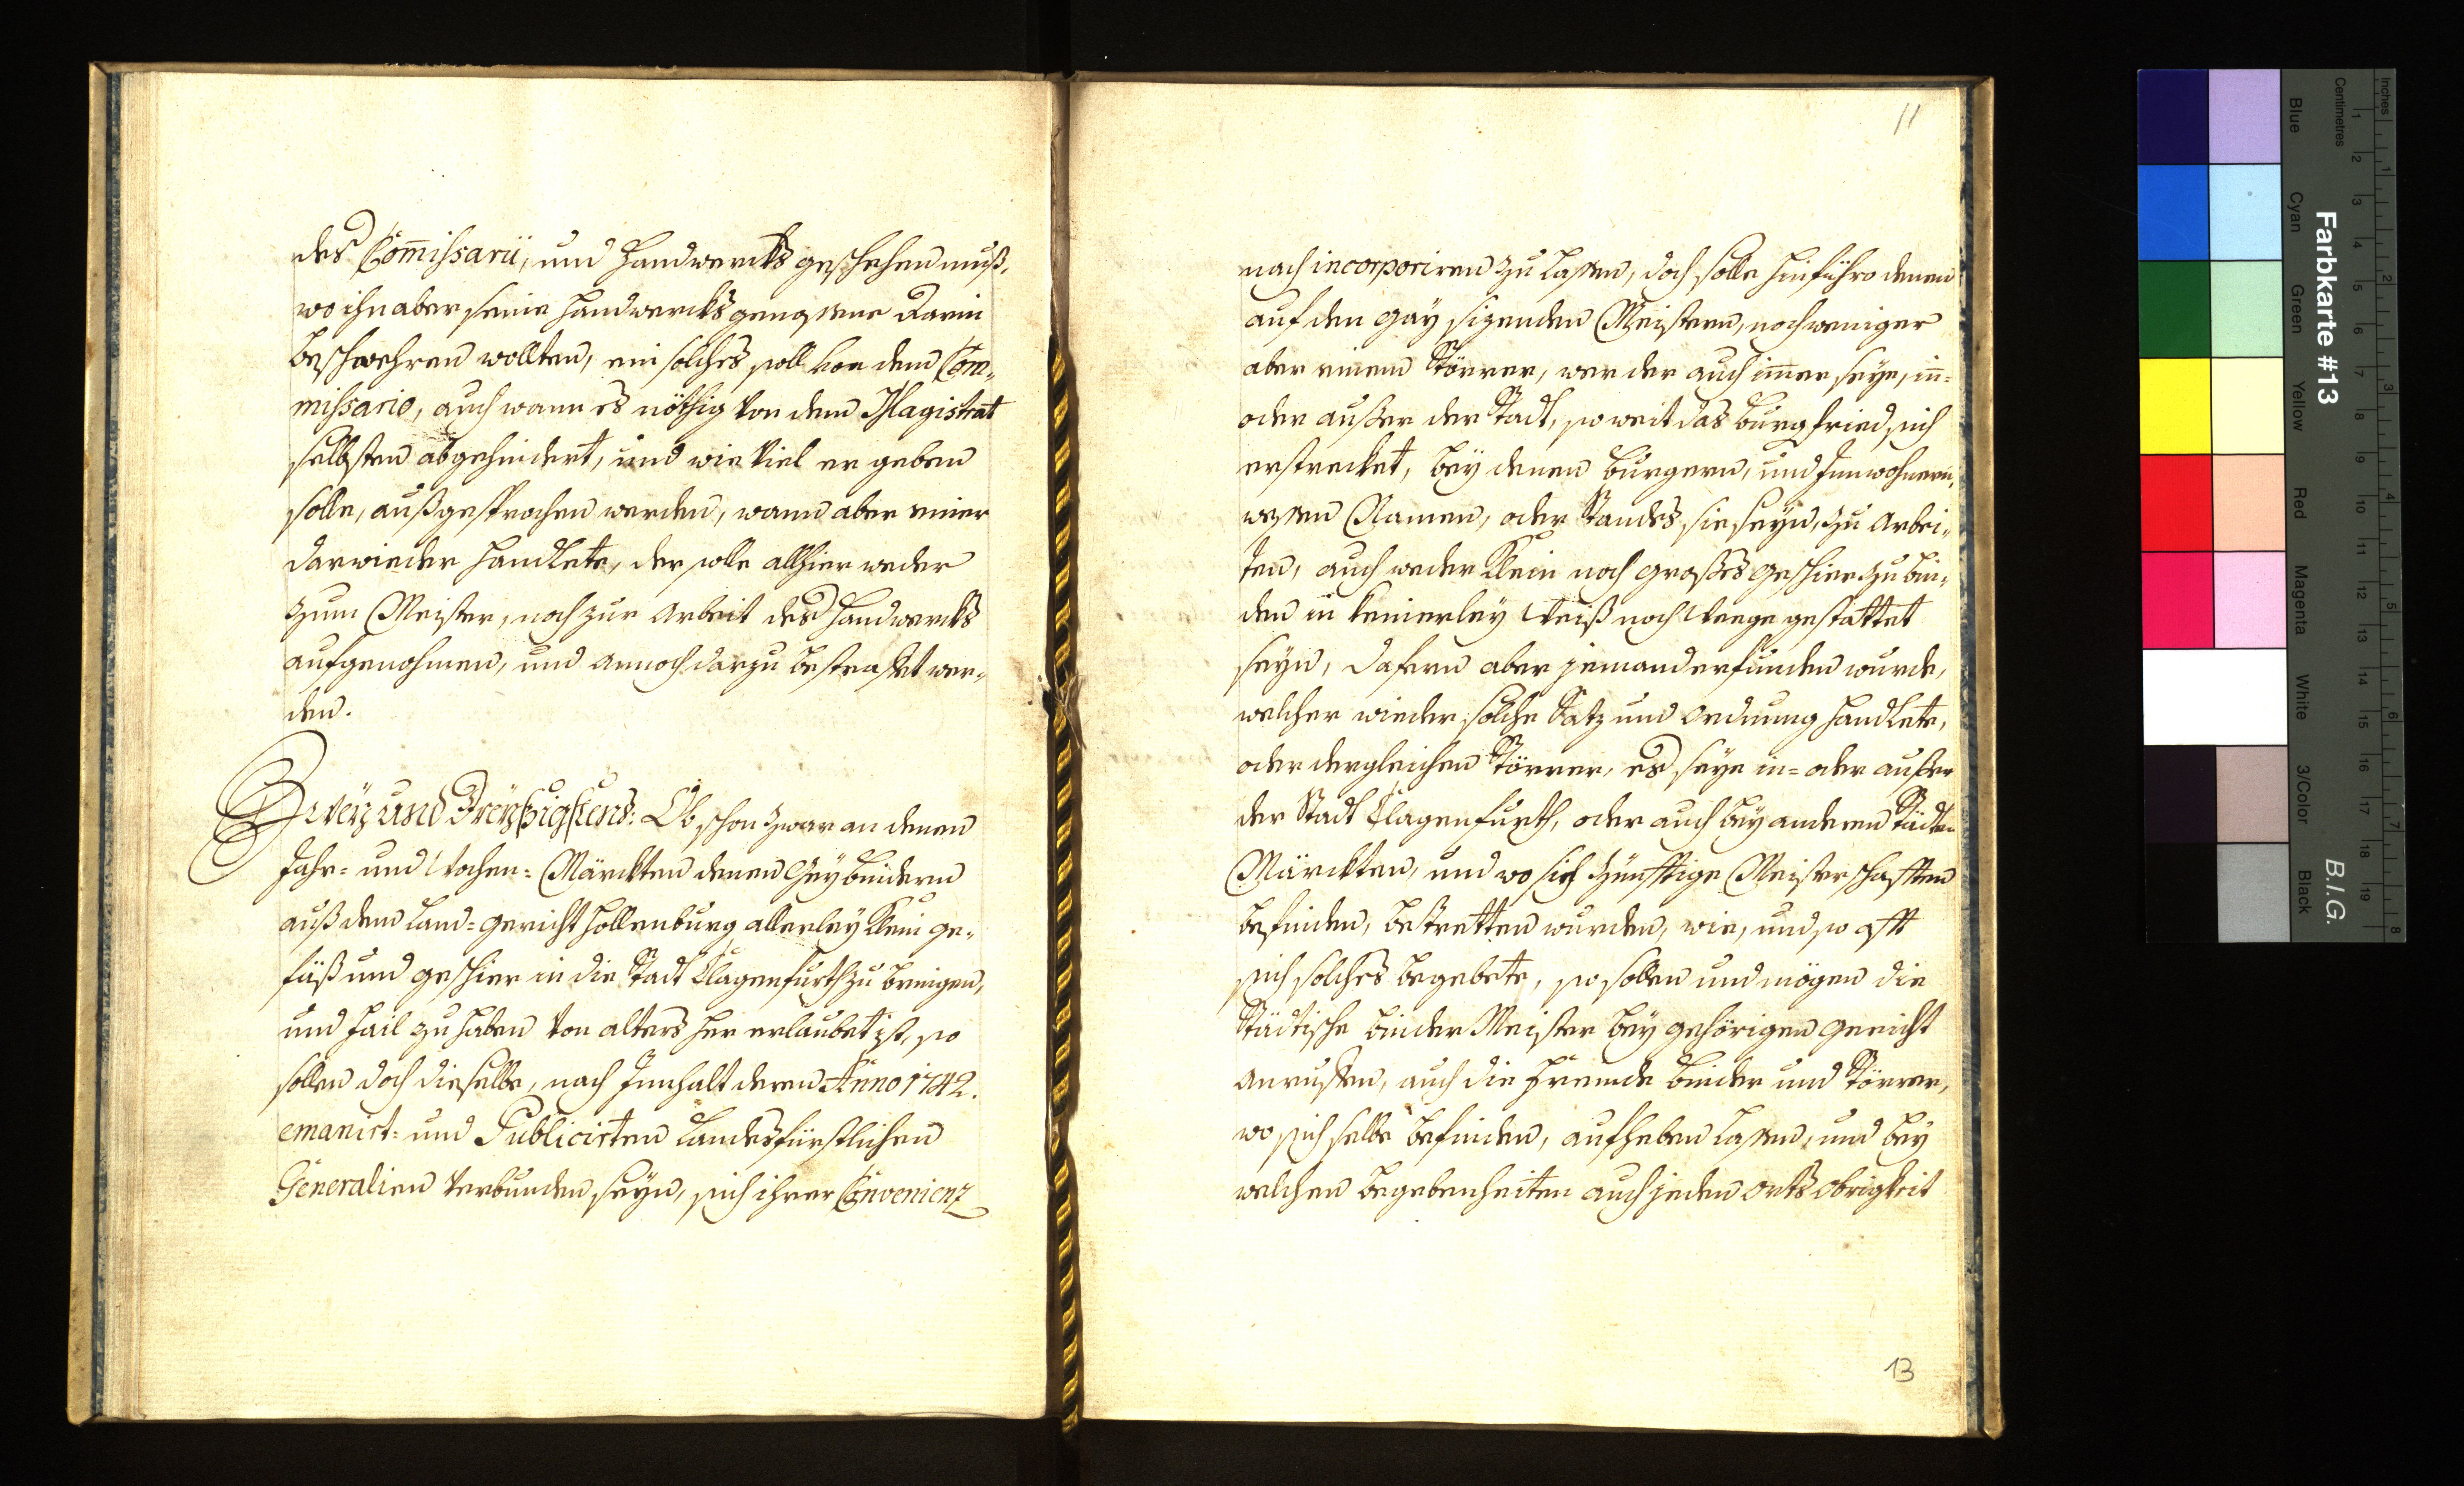 des Com̅issarii, und Handwercks geschehen muß.
wo ihn aber seine Handwercksgenossene darin
beschwehren wollten, ein solches soll von dem Com-
missario, auch wann es nöthig von dem Magistrat
selbsten abgehindert, und wie viel er geben
solle, außgesprochen werden, wann aber einer
darwieder handlete, der solle allhier weder
zum Meister, noch zur Arbeit des Handwercks
aufgenohmen, und annoch darzu bestraffet wer-
den.
Zwey und Dreyßigstens: Ob schon zwar an denen
Jahr= und Wochen= Märckten denen Geybindern
auß dem Land=gericht Hollenburg allerley klein ge-
fäß und geschier in die Stadt Clagenfurth zu bringen,
und fail zu haben von alters her erlaubet ist, so
sollen doch dieselbe, nach Innhalt deren Anno 1742.
emanirt= und Publicirten Landesfürstlichen
Generalien verbunden seyn, sich ihrer Convenienz
11
nach incorporiren zu lassen, doch solle hinführo denen
auf den Gay sizenden Meistern, noch weniger
aber einem Störrer, wer der auch im̅er seye, in=
oder ausser der Stadt, so weit das Burgfried sich
erstrecket, bey denen Burgern, und Innwohnern,
wessen Namen, oder Standes sie seyn, zu arbei-
ten, auch weder klein noch grosses geschier zu bin-
den in keinerley Weiß noch Weege gestattet
seyn, dafern aber jemand erfunden wurde,
welcher wieder solche Satz und ordnung handlete,
oder dergleichen Störrer, es seye in= oder ausser
der Stadt Clagenfurth, oder auch bey anderen Städten
Märckten, und wo sich zünfftige Meisterschafften
befinden, betretten wurden, wie, und so offt
sich solches begebete, so sollen und mögen die
Städtische Binder Meister bey gehörigen gericht
anruffen, auch die Fremde Binder und Störrer,
wo sich selbe befinden, aufheben lassen, und bey
welchen begebenheiten auch jeden orts obrigkeit
13
Farbkarte #13
B.I.G.
Inches
Centimetres
Blue
Cyan
Green
Yellow
Red
Magenta
White
3/Color
Black
1 2 3 4 5 6 7 8 9 10 11 12 13 14 15 16 17 18 19
1 2 3 4 5 6 7 8